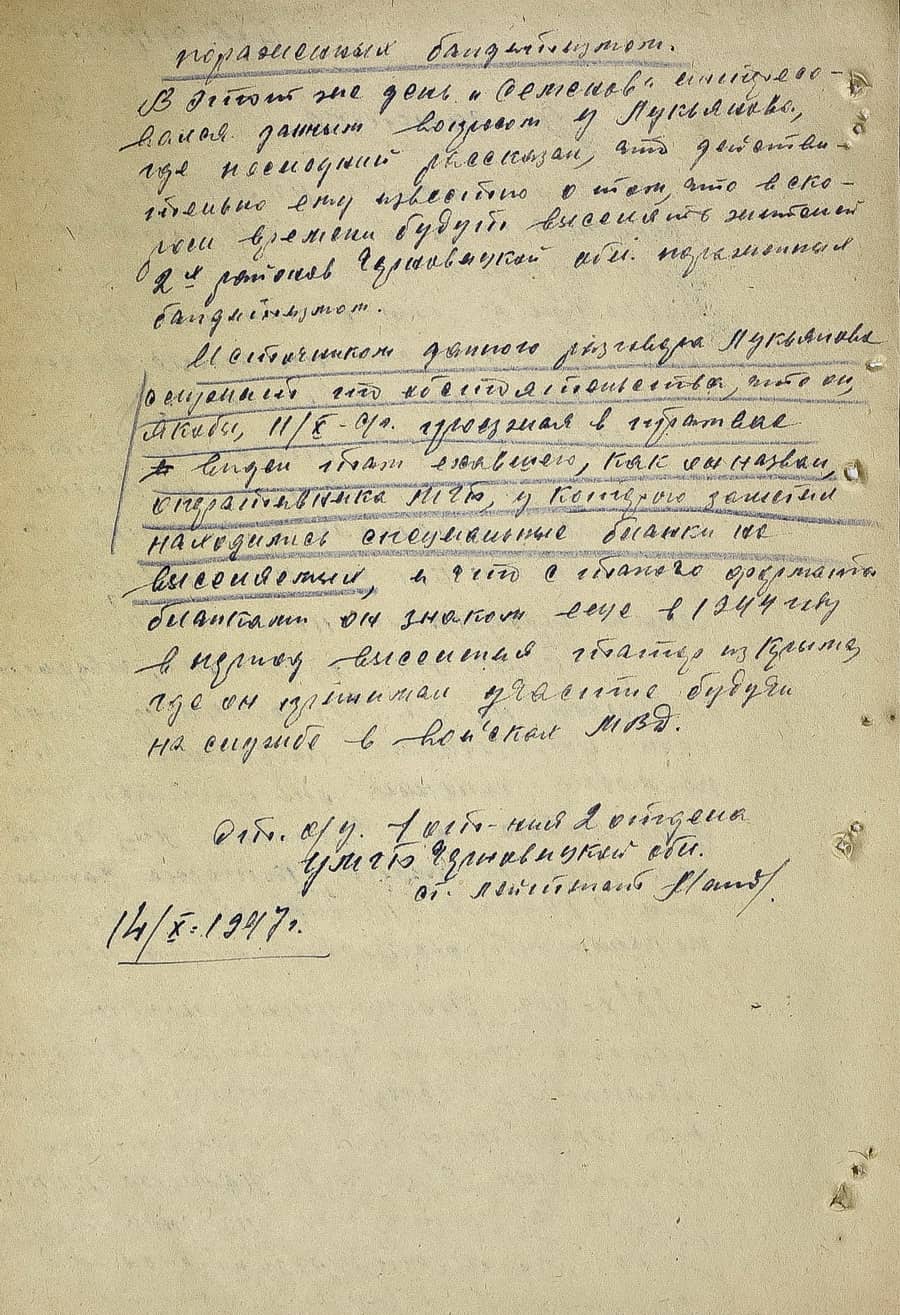 пораженных бандитизмом.
В этот же день „Семенов“ интересо-
вался данным вопросом у Лукьянова,
где последний рассказал, что действи-
тельно ему известно о том, что в ско-
ром времени будут выселять жителей
2х районов Черновицкой обл. пораженных
бандитизмом.
Источником данного разговора Лукьянова
служит то обстоятельство, что он,
якобы, 11/X-с/г. проезжая в трамвае
видел там ехавшего, как он назвал,
оперативника МГБ, у которого заметил
находились специальные бланки на
выселяемых, и что с такого формата
бланками он знаком еще в 1944 году
в период выселения татар из Крыма,
где он принимал участие будучи
на службе в войсках МВД.
о/у. 1 отд-ния 2 отдела
УМГБ Черновицкой обл.
ст. лейтенант
14/X-1947г.